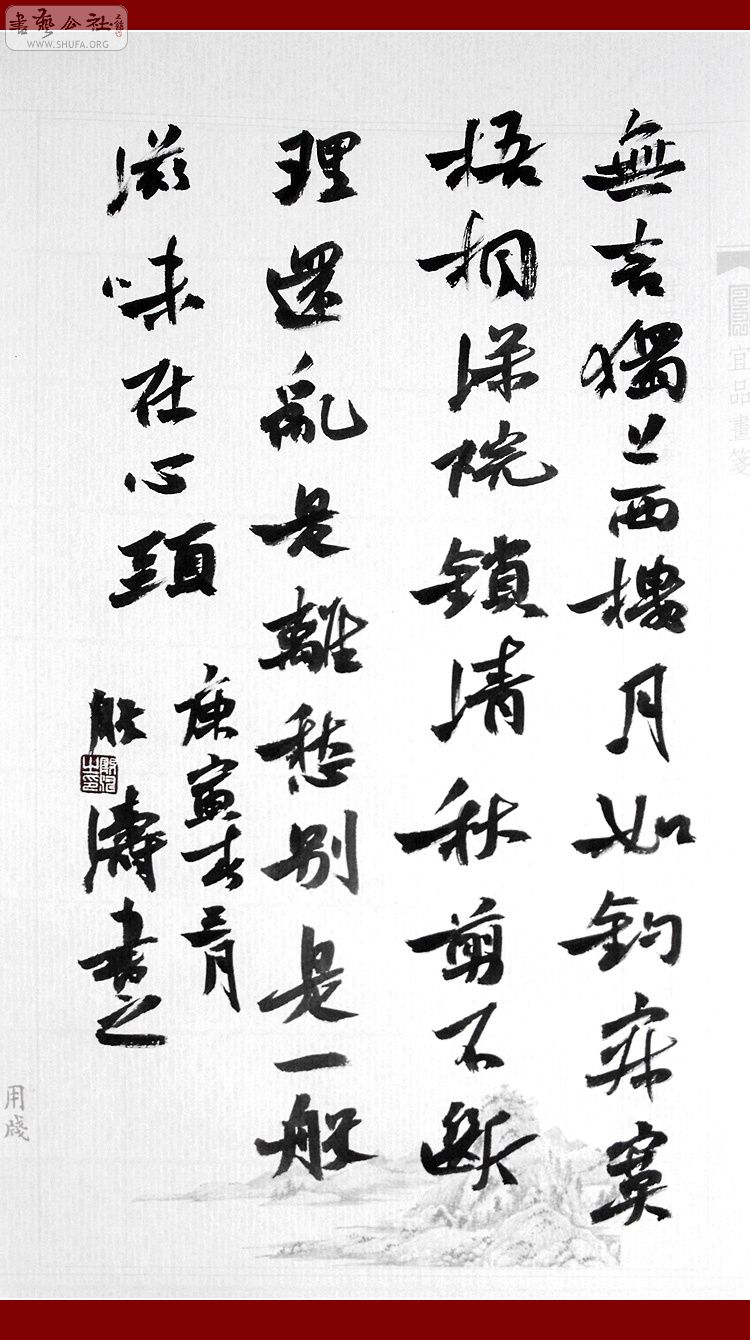 書藝公社
WWW.SHUFA.ORG
無言獨上西樓月如鈎寂寞
梧桐深院鎖清秋剪不斷
理還亂是離愁別是一般
滋味在心頭
庚寅春三月
殷濤書之
宜品畫箋
用牋